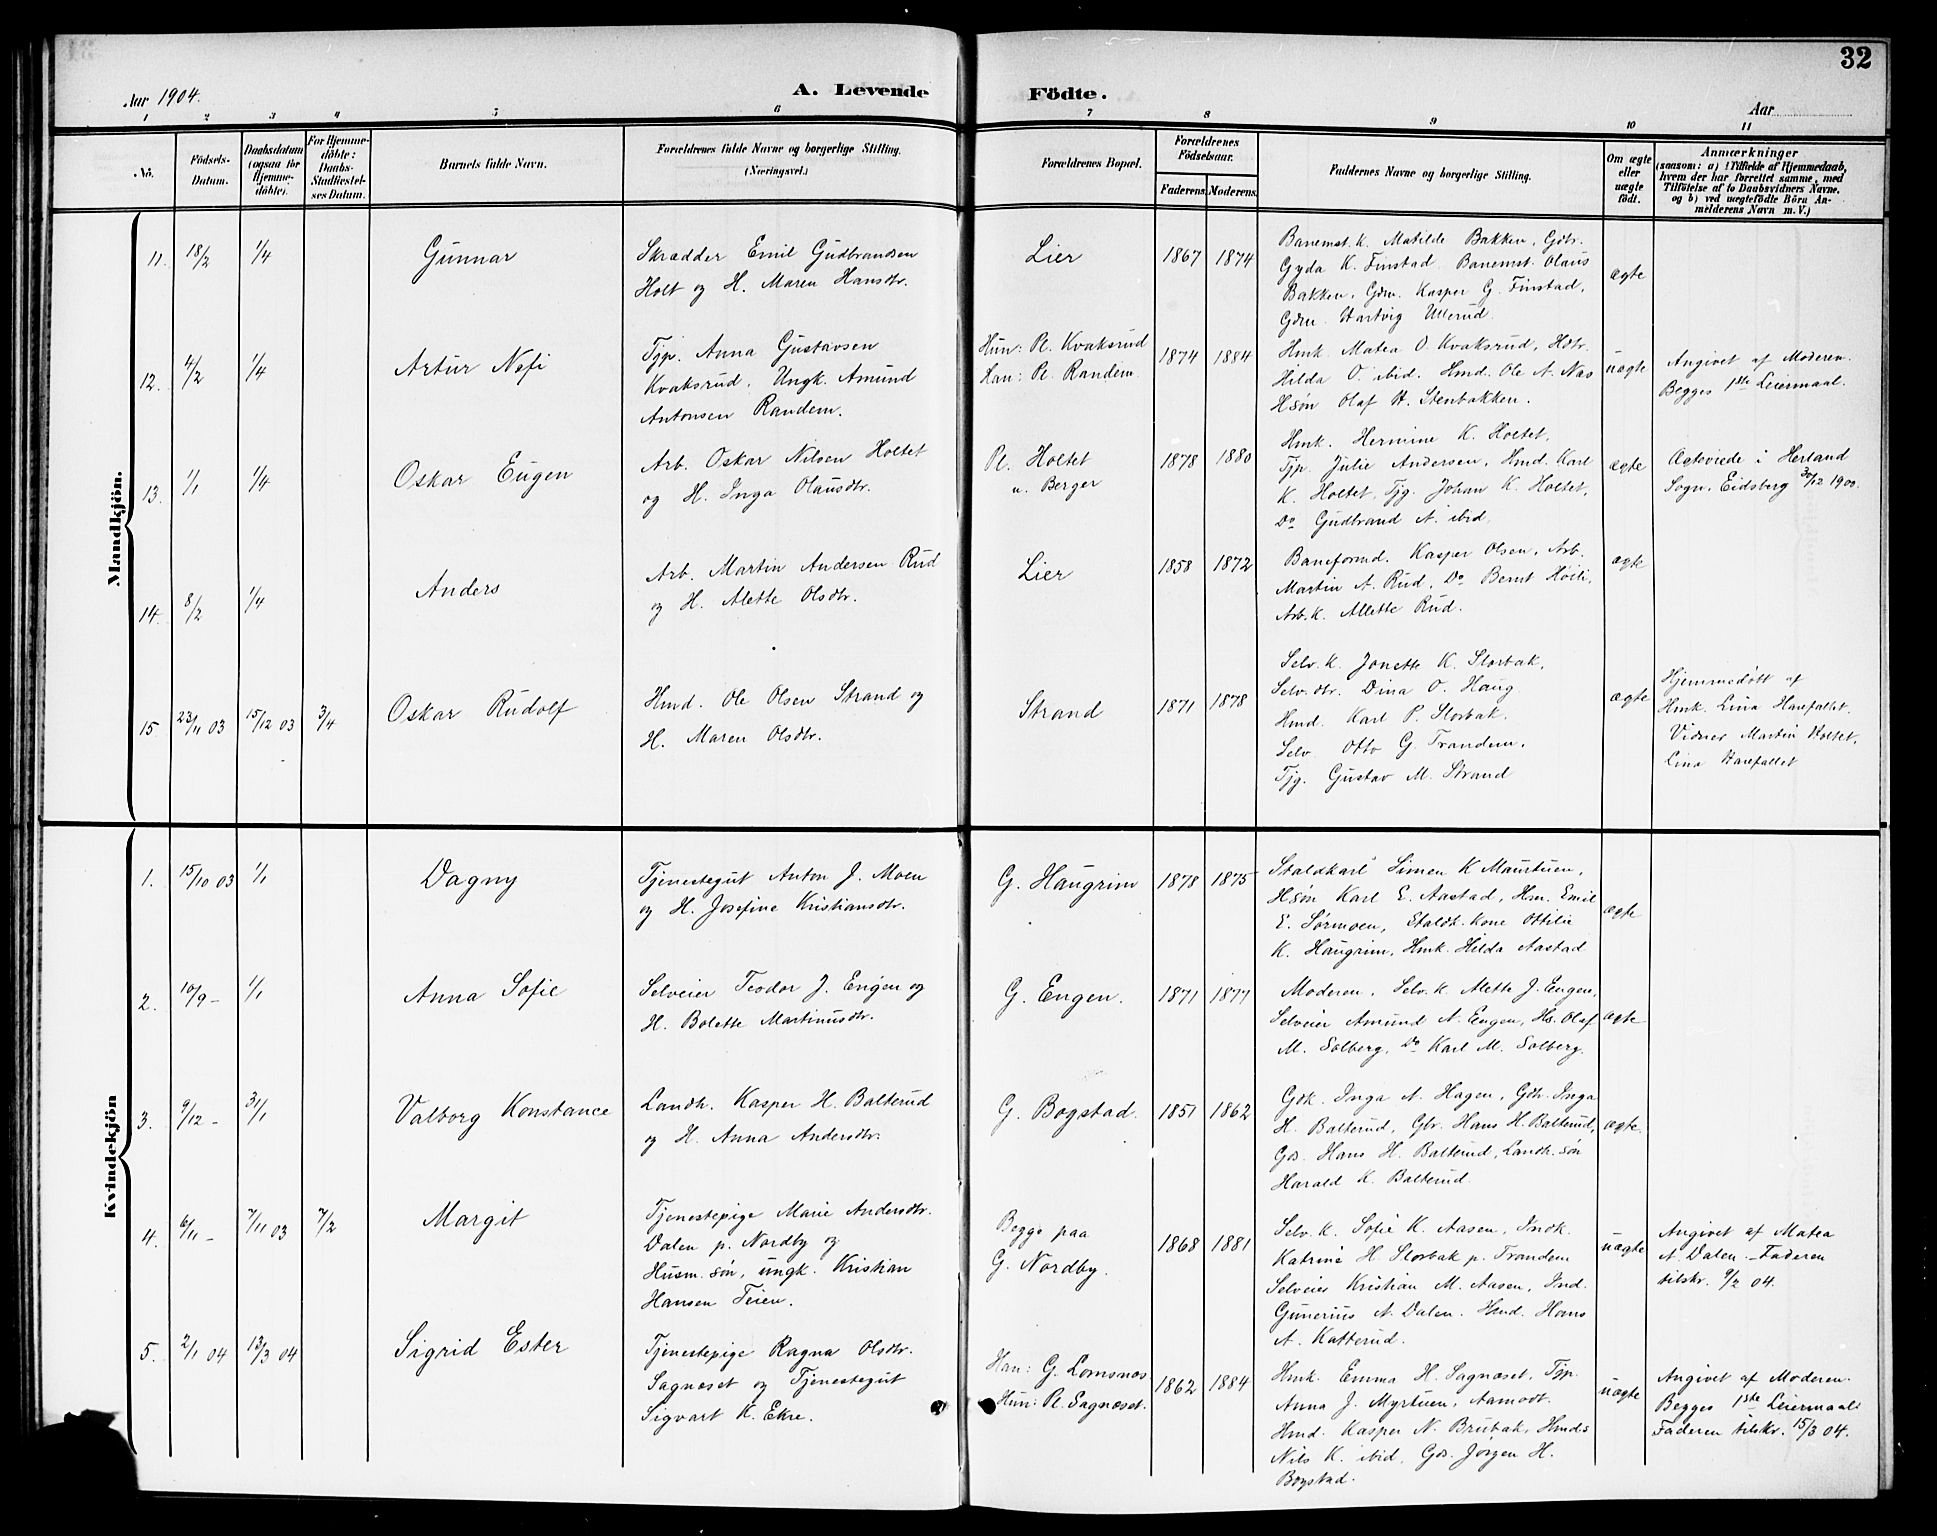 32
Aar 1904.
A. Levende Födte.
Aar
1 2 3 4 5 6 7 8 9 10 11
No.
Födsels-
Datum.
Daabsdatum
(ogsaa for
Hjemme-
döbte).
For Hjemme-
döbte:
Daabs-
Stadfæstel-
ses Datum.
Barnets fulde Navn.
Forældrenes fulde Navne og borgerlige Stilling.
(Næringsvei.)
Forældrenes Bopæl.
Forældrenes
Födselsaar.
Faderens. Moderens.
Faddernes Navne og borgerlige Stilling.
Om ægte
eller
uægte
födt.
Anmærkninger
(saasom: a) i Tilfælde af Hjemmedaab,
hvem der har forrettet samme, med
Tilföielse af to Daabsvidners Navne,
og b) ved uægtefödte Börn An-
melderens Navn m. V.)
Mandkjön.
11. 18/2 1/4 Gunnar
Skrædder Emil Gudbrandsen
Holt og H. Maren Hansdtr.
Lier 1867 1874
Banemst. k. Matilde Bakken, Gdtr.
Gyda K. Finstad. Banemst. Olaus
Bakken, Gdm. Kasper G. Finstad,
Gdm. Hartvig Ullerud.
ægte
12. 4/2 1/4 Artur Nefi
Tjp. Anna Gustavsen
Kvaksrud. Ungk. Amund
Antonsen Randem.
Hun: Pl. Kvaksrud
Han: Pl. Randem.
1874 1884
Hmk. Matea O Kvaksrud, Hdtr.
Hilda O. ibid. Hmd. Ole A. Næs
Hsön Olaf H. Stenbakken.
uægte
Angivet af Moderen.
Begges 1ste Leiermaal.
13. 1/1 1/4 Oskar Eugen
Arb. Oskar Nilsen Holtet
og H. Inga Olausdtr.
Pl. Holtet
u. Berger
1878 1880
Hmk. Hermine K. Holtet,
Tjp. Julie Andersen, Hmd. Karl
K. Holtet, Tjg. Johan K. Holtet,
Do Gudbrand A. ibid.
ægte
Ægteviede i Herland
Sogn, Eidsberg 30/12 1900.
14. 8/2 1/4 Anders
Arb. Martin Andersen Rud
og H. Alette Olsdtr.
Lier 1858 1872
Baneformd. Kasper Olsen, Arb.
Martin A. Rud, Do Bernt Höili,
Arb.k. Allette Rud.
ægte
15. 23/11 03 15/12 03 3/4 Oskar Rudolf
Hmd. Ole Olsen Strand og
H. Maren Olsdtr.
Strand 1871 1878
Selv. k. Jonette K. Slorbak,
Selv. dtr. Dina O. Haug
Hmd. Karl P. Slorbak.
Selv. Otto G. Trandem,
Tjg. Gustav M. Strand
ægte
Hjemmedöbt af
Hmk. Lina Harefallet.
Vidner Martin Holtet,
Lina Harefallet
Kvindekjön
1. 15/10 03 1/1 Dagny
Tjenestegut Anton J. Moen
og H. Josefine Kristiansdtr.
G. Haugrim 1878 1875
Staldkarl Simen K Maurtuen,
Hsön Karl E. Aastad, Hm. Emil
E. Sörmoen, Staldk. Kone Ottilie
K. Haugrim, Hmk. Hilda Aastad
ægte
2. 10/9 - 1/1 Anna Sofie
Selveier Teodor J. Engen og
H. Bolette Martinusdtr.
G. Engen. 1871 1877
Moderen, Selv. k. Alette J. Engen,
Selveier Amund A. Engen, Hs. Olaf
M. Solberg, Do Karl M. Solberg.
ægte
3. 9/12 - 31/1 Valborg Konstance
Landh. Kasper H. Balterud
og H. Anna Andersdtr.
G. Bogstad. 1851 1862
Gdk. Inga A. Hagen, Gdtr. Inga
H. Balterud, Gbr. Hans H. Balterud,
Gds. Hans H. Balterud, Landh. sön
Harald K. Balterud.
ægte.
4. 6/11 - 7/11 03 7/2 Margit
Tjenestepige Marie Andersdtr.
Dalen p. Nordby og
Husm. sön, ungk. Kristian
Hansen Teien.
Begge paa
G. Nordby.
1868 1881
Selv. k. Sofie K. Aasen, Indk.
Katrine H Slorbak p. Trandem
Selveier Kristian M. Aasen, Ind.
Gunerius A. Dalen. Hmd. Hans
A. Katterud.
uægte
Angivet af Matea
A. Dalen. - Faderen
tilskr. 9/2 04.
5. 2/1 04 13/3 04 Sigrid Ester
Tjenestepige Ragna Olsdtr.
Sagnæset og Tjenestegut
Sigvart K. Ekre.
Han: G. Lomsnæs
Hun: Pl. Sagnæset.
1862 1884
Hmk. Emma H. Sagnæset, Tjp.
Anna J. Myrtuen, Aamodt.
Hmd. Kasper N. Brubak, Hmds
Nils K. ibid, Gds. Jörgen H.
Bogstad.
uægte
Angivet af Moderen.
Begges 1ste Leiermaal.
Faderen tilskr. 15/3 04.